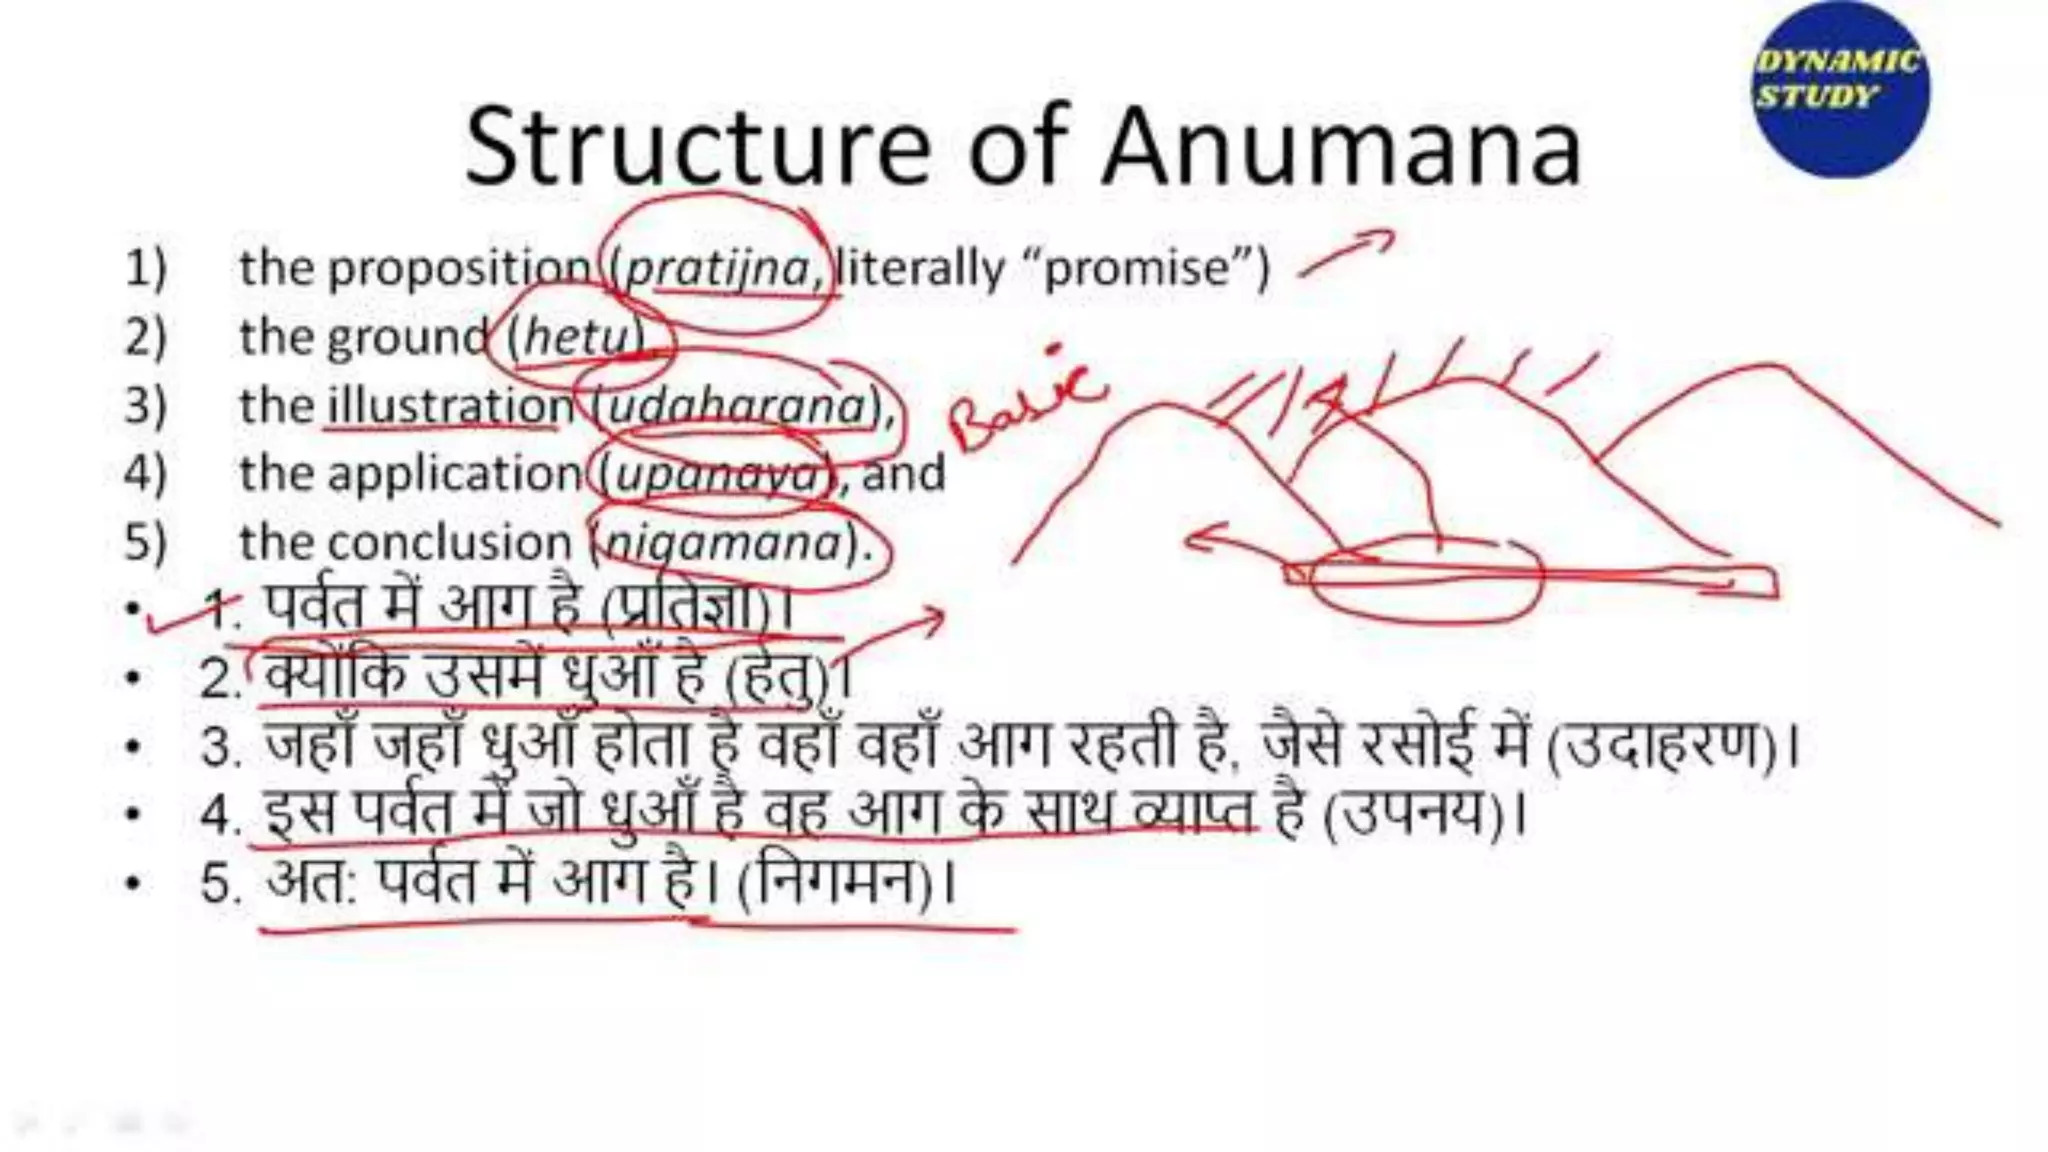 DYNAMIC
STUDY
Structure of Anumana
1) the proposition (pratijna, literally “promise”)
2) the ground (hetu),
3) the illustration (udaharana),
Basic
4) the application (upanaya), and
5) the conclusion (nigamana).
• 1. पर्वत में आग है (प्रतिज्ञा)।
• 2. क्योंकि उसमें धुआँ है (हेतु)।
• 3. जहाँ जहाँ धुआँ होता है वहाँ वहाँ आग रहती है, जैसे रसोई में (उदाहरण)।
• 4. इस पर्वत में जो धुआँ है वह आग के साथ व्याप्त है (उपनय)।
• 5. अत: पर्वत में आग है। (निगमन)।